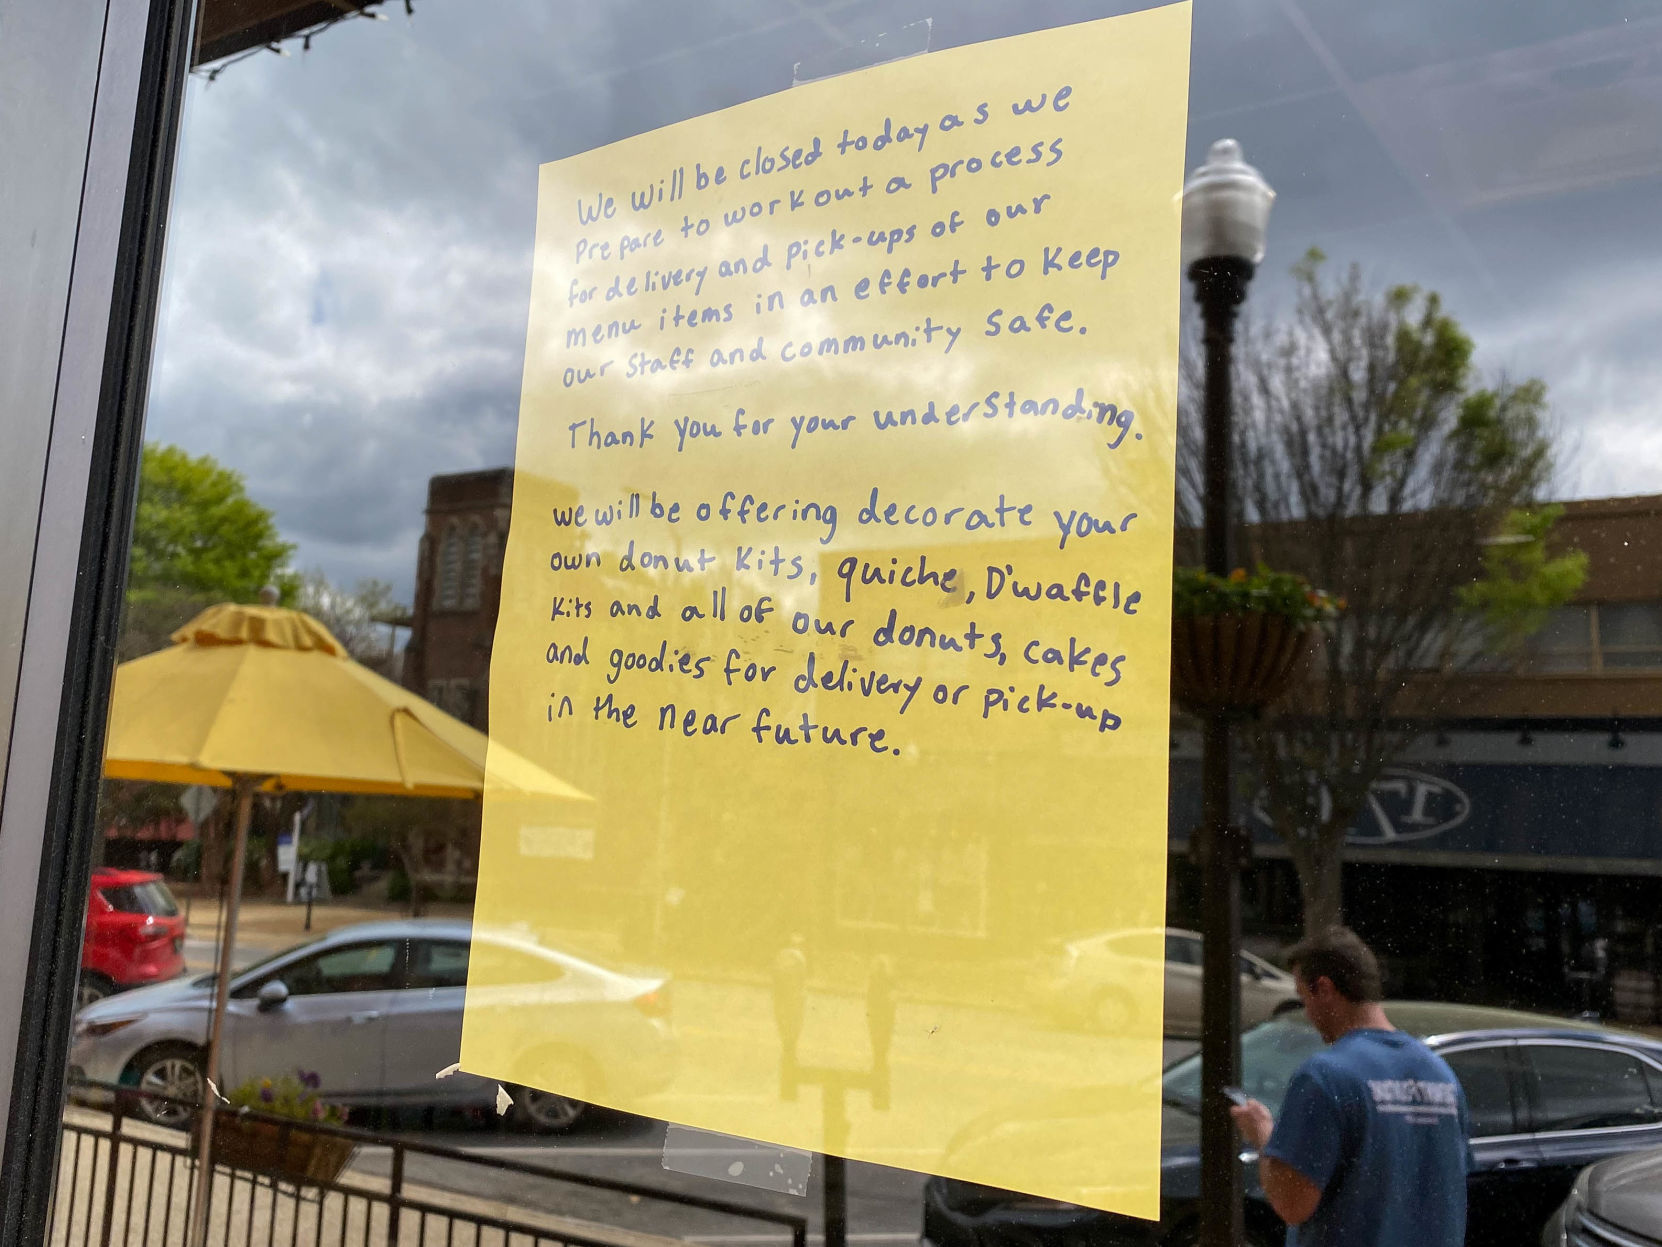 We will be closed today as we
Prepare to work out a process
for delivery and pick-ups of our
menu items in an effort to keep
our staff and community safe.
Thank you for your understanding.
we will be offering decorate your
own donut kits, quiche, D'waffle
kits and all of our donuts, cakes
and goodies for delivery or pick-up
in the near future.